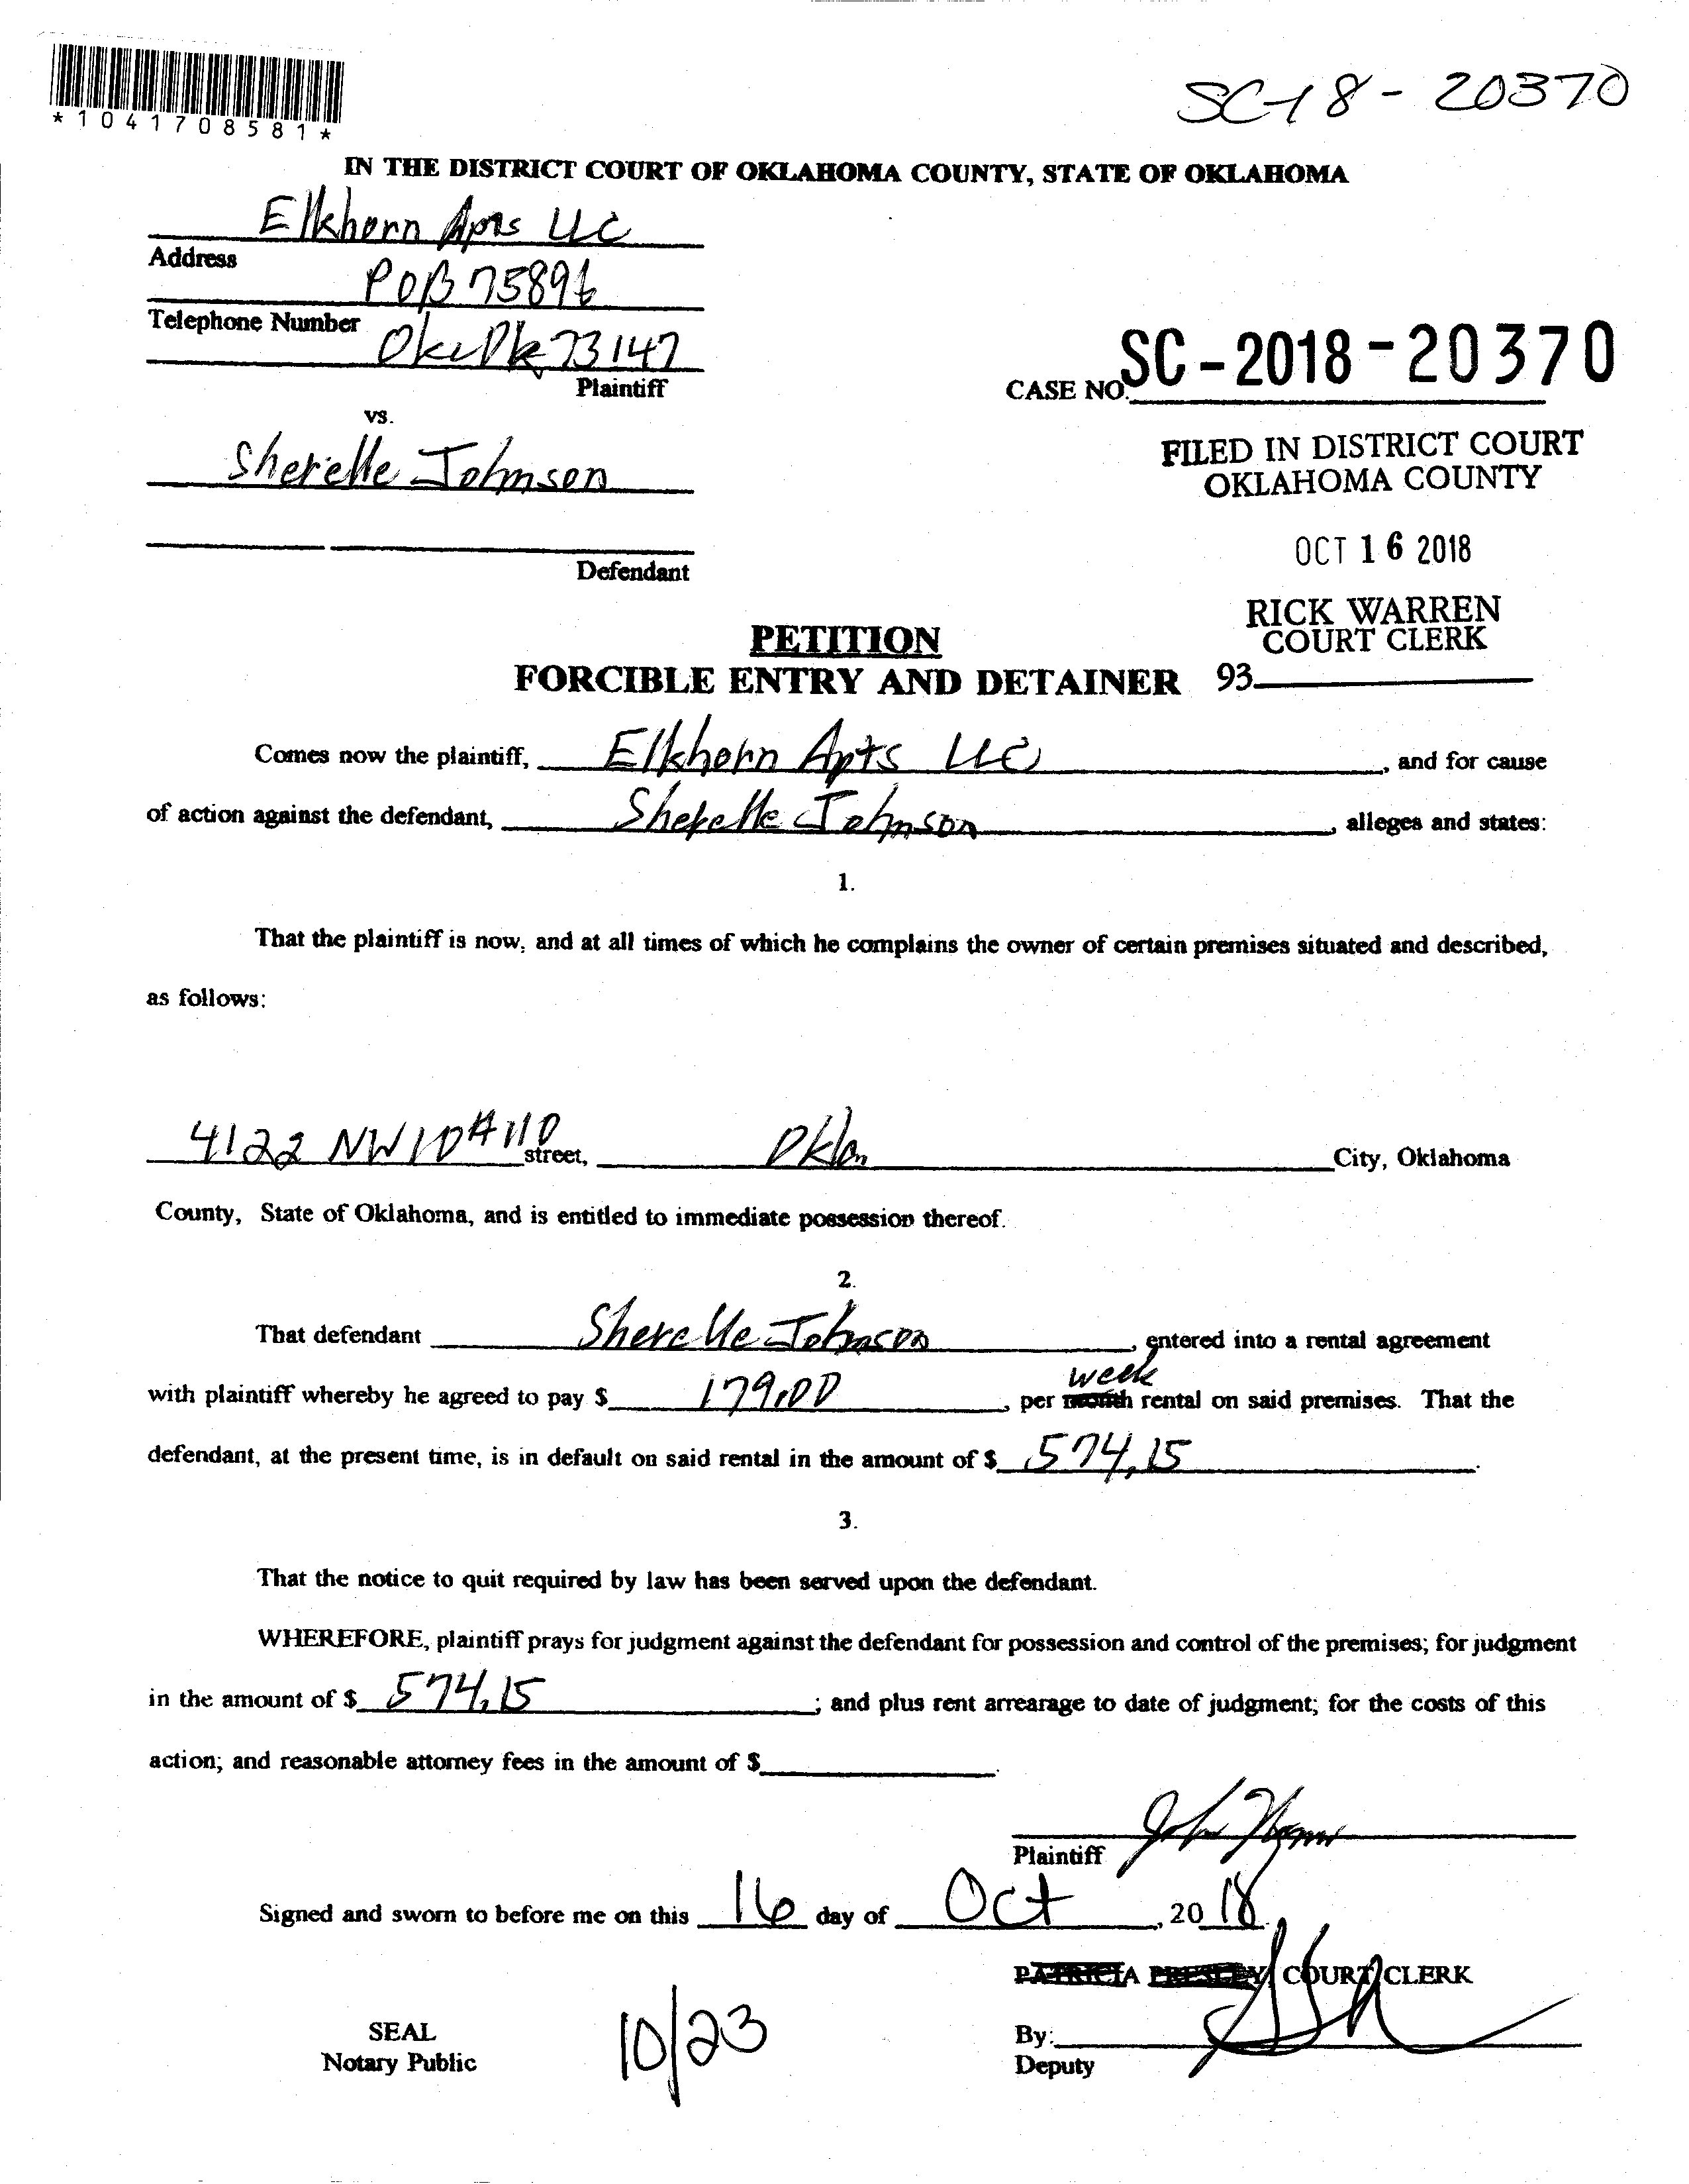 *1041708581*
SC-18-20370
IN THE DISTRICT COURT OF OKLAHOMA COUNTY, STATE OF OKLAHOMA
Elkhorn Apts LLC
Address
POB 75896
Telephone Number
73147
Plaintiff
CASE NO. SC-2018-20370
vs.
Sherelle Johnson
FILED IN DISTRICT COURT
OKLAHOMA COUNTY
OCT 16 2018
Defendant
RICK WARREN
COURT CLERK
PETITION
FORCIBLE ENTRY AND DETAINER 93
Comes now the plaintiff, Elkhorn Apts LLC, and for cause
of action against the defendant, Sherelle Johnson, alleges and states:
1.
That the plaintiff is now, and at all times of which he complains the owner of certain premises situated and described,
as follows:
4122 NW 10 #110 street, Okla City, Oklahoma
County, State of Oklahoma, and is entitled to immediate possession thereof.
2.
That defendant Sherelle Johnson, entered into a rental agreement
week
with plaintiff whereby he agreed to pay $ 179.00, per month rental on said premises. That the
defendant, at the present time, is in default on said rental in the amount of $ 574.15.
3.
That the notice to quit required by law has been served upon the defendant.
WHEREFORE, plaintiff prays for judgment against the defendant for possession and control of the premises; for judgment
in the amount of $ 574.15; and plus rent arrearage to date of judgment; for the costs of this
action; and reasonable attorney fees in the amount of $.
Plaintiff
Signed and sworn to before me on this 16 day of Oct, 2018.
PATRICIA PRESLEY, COURT CLERK
SEAL
Notary Public
10/23
By:
Deputy